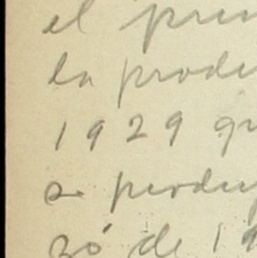 el prin
la produ
1929 qu
a produ
zó de 19